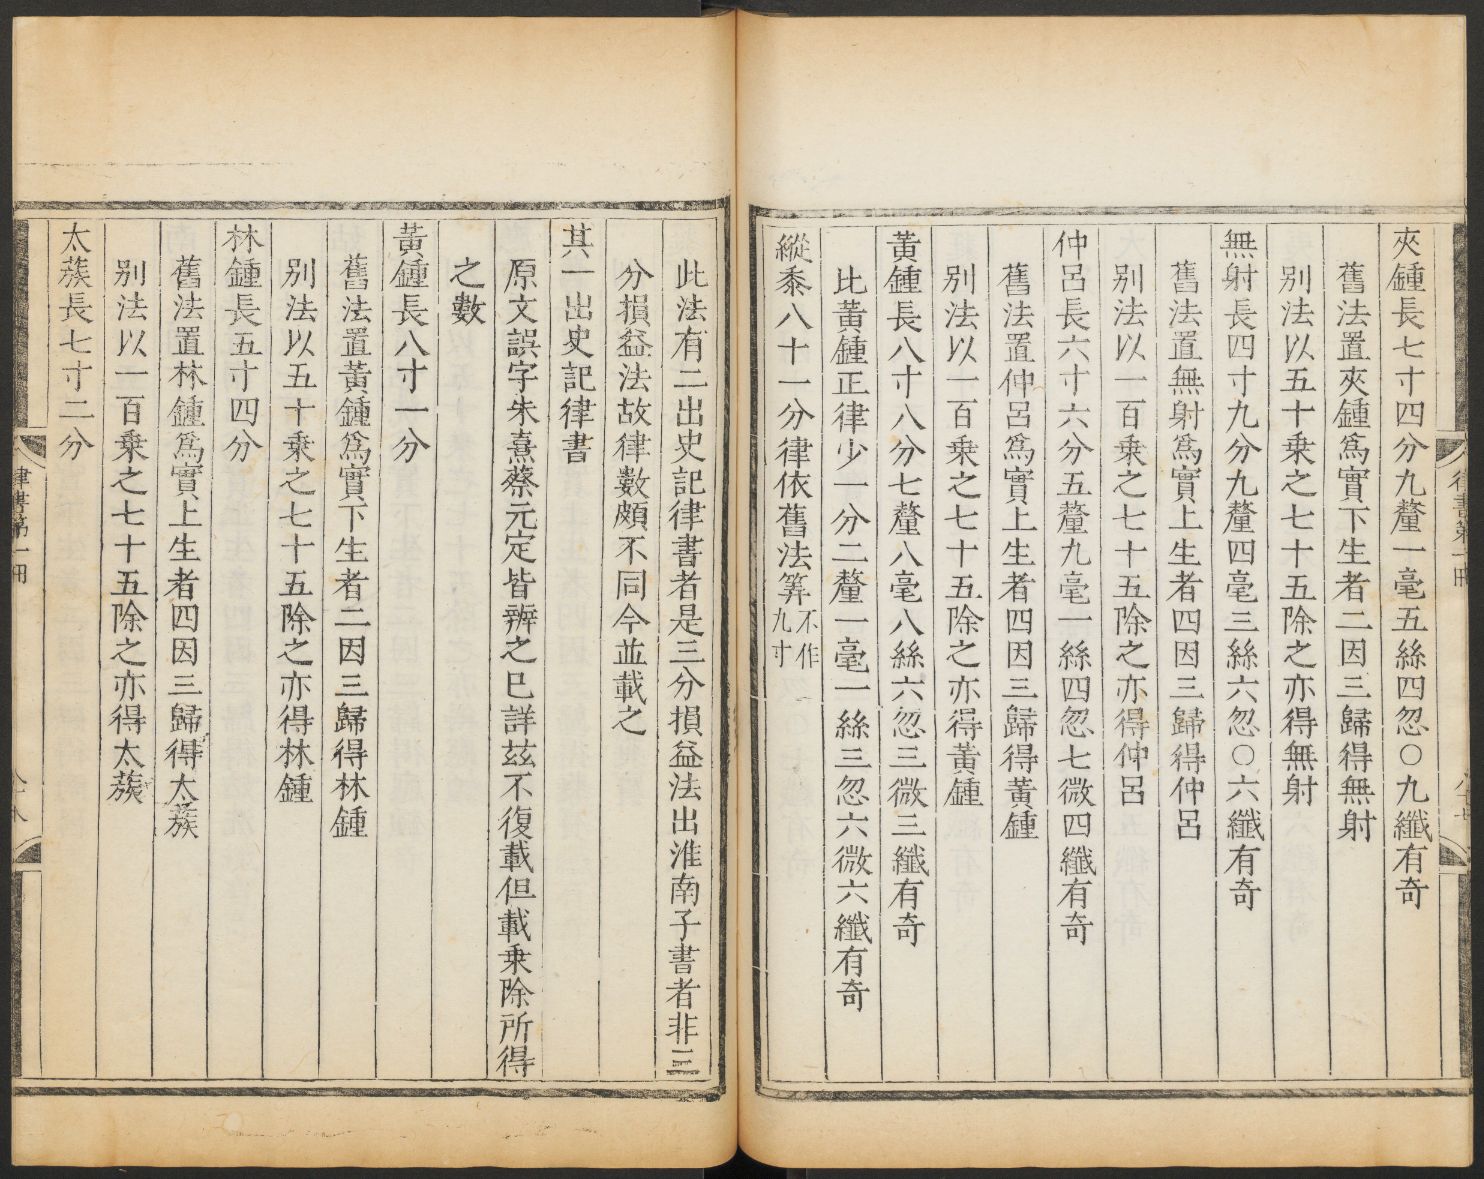 夾鍾長七寸四分九釐一毫五絲四忽〇九纖有奇
舊法置夾鍾爲實下生者二因三歸得無射
別法以五十乗之七十五除之亦得無射
無射長四寸九分九釐四毫三絲六忽〇六纖有奇
舊法置無射爲實上生者四因三歸得仲呂
別法以一百乗之七十五除之亦得仲呂
仲呂長六寸六分五釐九毫一絲四忽七微四纖有奇
舊法置仲呂爲實上生者四因三歸得黃鍾
別法以一百乗之七十五除之亦得黃鍾
黃鍾長八寸八分七釐八毫八絲六忽三微三纖有奇
比黃鍾正律少一分二釐一毫一絲三忽六微六纖有奇
縱黍八十一分律依舊法筭不作九寸
此法有二出史記律書者是三分損益法出淮南子書者非三
分損益法故律數頗不同今並載之
其一出史記律書
原文誤字朱熹蔡元定皆辨之已詳玆不復載但載乗除所得
之數
黃鍾長八寸一分
舊法置黃鍾爲實下生者二因三歸得林鍾
別法以五十乗之七十五除之亦得林鍾
林鍾長五寸四分
舊法置林鍾爲實上生者四因三歸得太蔟
別法以一百乗之七十五除之亦得太蔟
太蔟長七寸二分
律書第一冊